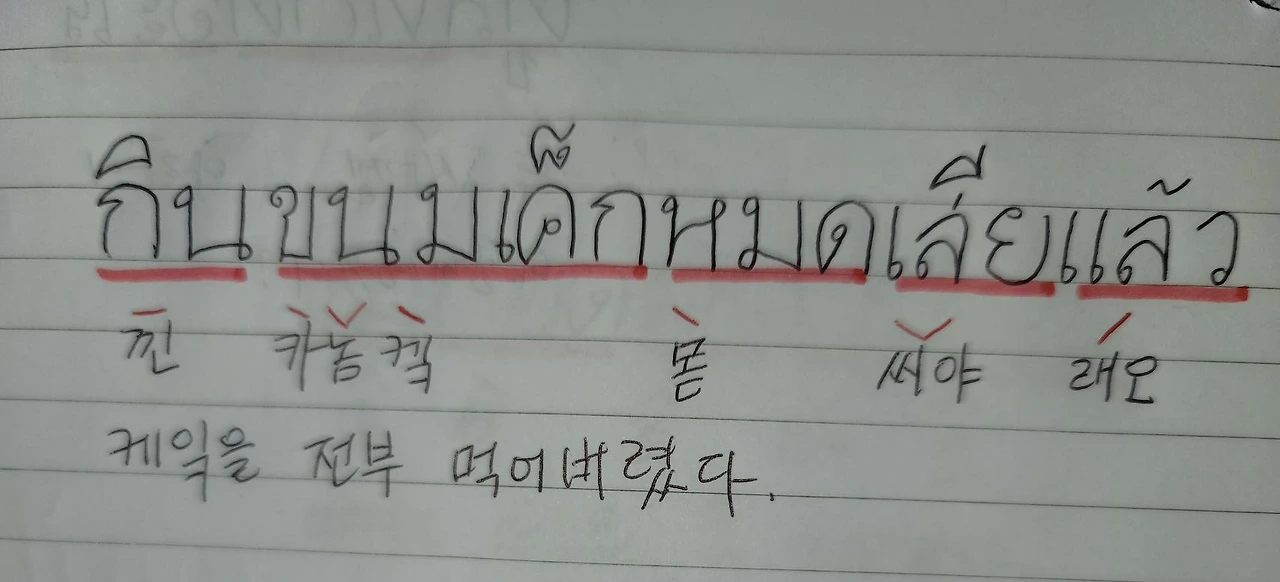 กินขนมเค๊กหมดเสียแล้ว
낀 카놈 켁 몯 써야 래오
케익을 전부 먹어버렸다.